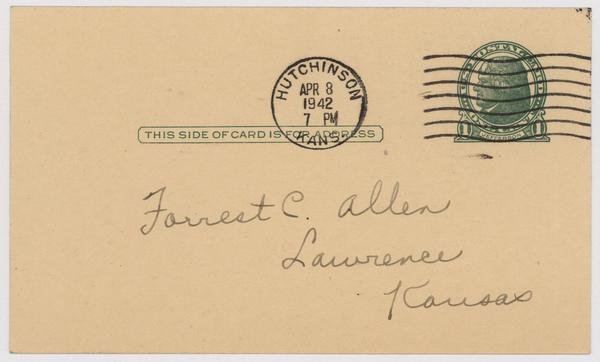 HUTCHINSON
APR 8
1942
7 PM
KANS.
THIS SIDE OF CARD IS FOR ADDRESS
1 JEFFERSON 1
Forrest C. Allen
Lawrence
Kansas